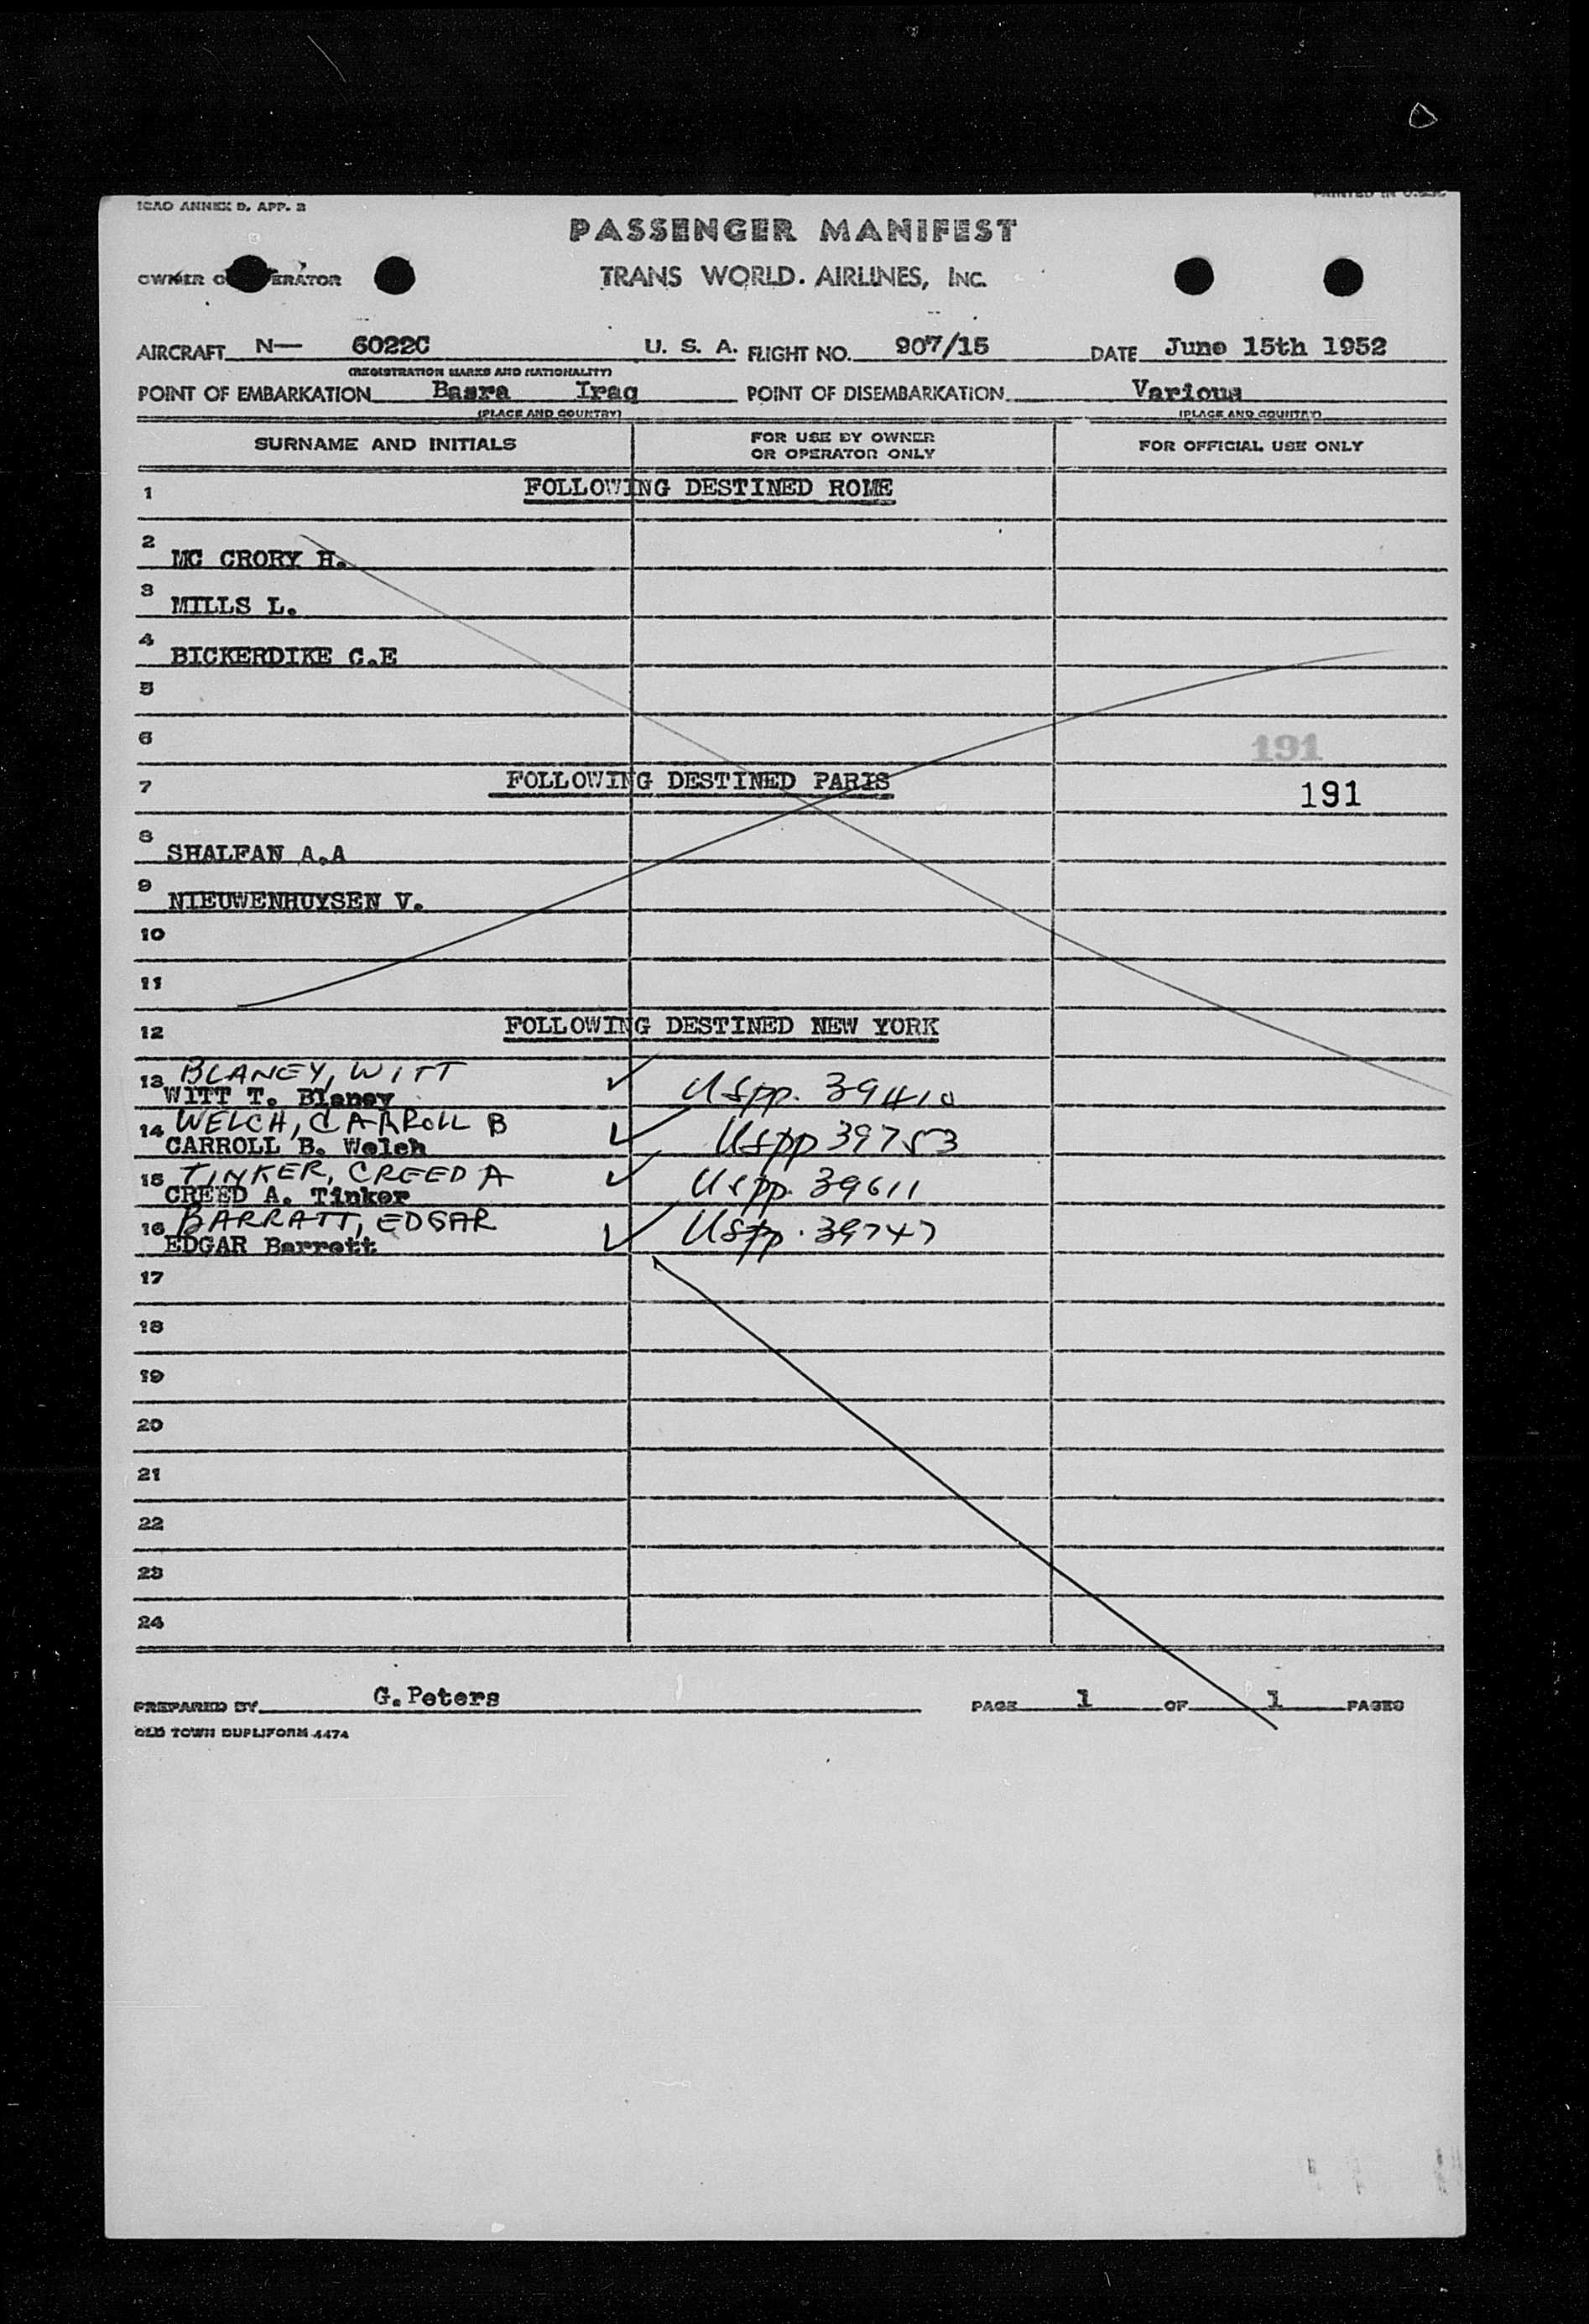 ICAO ANNEX D, APP. 2
PRINTED IN U.S.A.
PASSENGER MANIFEST
OWNER O ERATOR
TRANS WORLD. AIRLINES, INC.
AIRCRAFT N— 6022C U. S. A. FLIGHT NO. 907/15 DATE June 15th 1952
(REGISTRATION MARKS AND NATIONALITY)
POINT OF EMBARKATION Basra Iraq POINT OF DISEMBARKATION Various
(PLACE AND COUNTRY) (PLACE AND COUNTRY)
SURNAME AND INITIALS FOR USE BY OWNER OR OPERATOR ONLY FOR OFFICIAL USE ONLY
1 FOLLOWING DESTINED ROME
2 MC CRORY H.
3 MILLS L.
4 BICKERDIKE C.E
5
6 191
7 FOLLOWING DESTINED PARIS 191
8 SHALFAN A.A
9 NIEUWENHUYSEN V.
10
11
12 FOLLOWING DESTINED NEW YORK
BLANEY, WITT
13 WITT T. Blaney USpp. 39410
WELCH, CARROLL B
14 CARROLL B. Welch USpp 39753
TINKER, CREED A
15 CREED A. Tinker USpp. 39611
BARRATT, EDGAR
16 EDGAR Barrett USpp. 39747
17
18
19
20
21
22
23
24
PREPARED BY G.Peters PAGE 1 OF 1 PAGES
OLD TOWN DUPLIFORM 4474